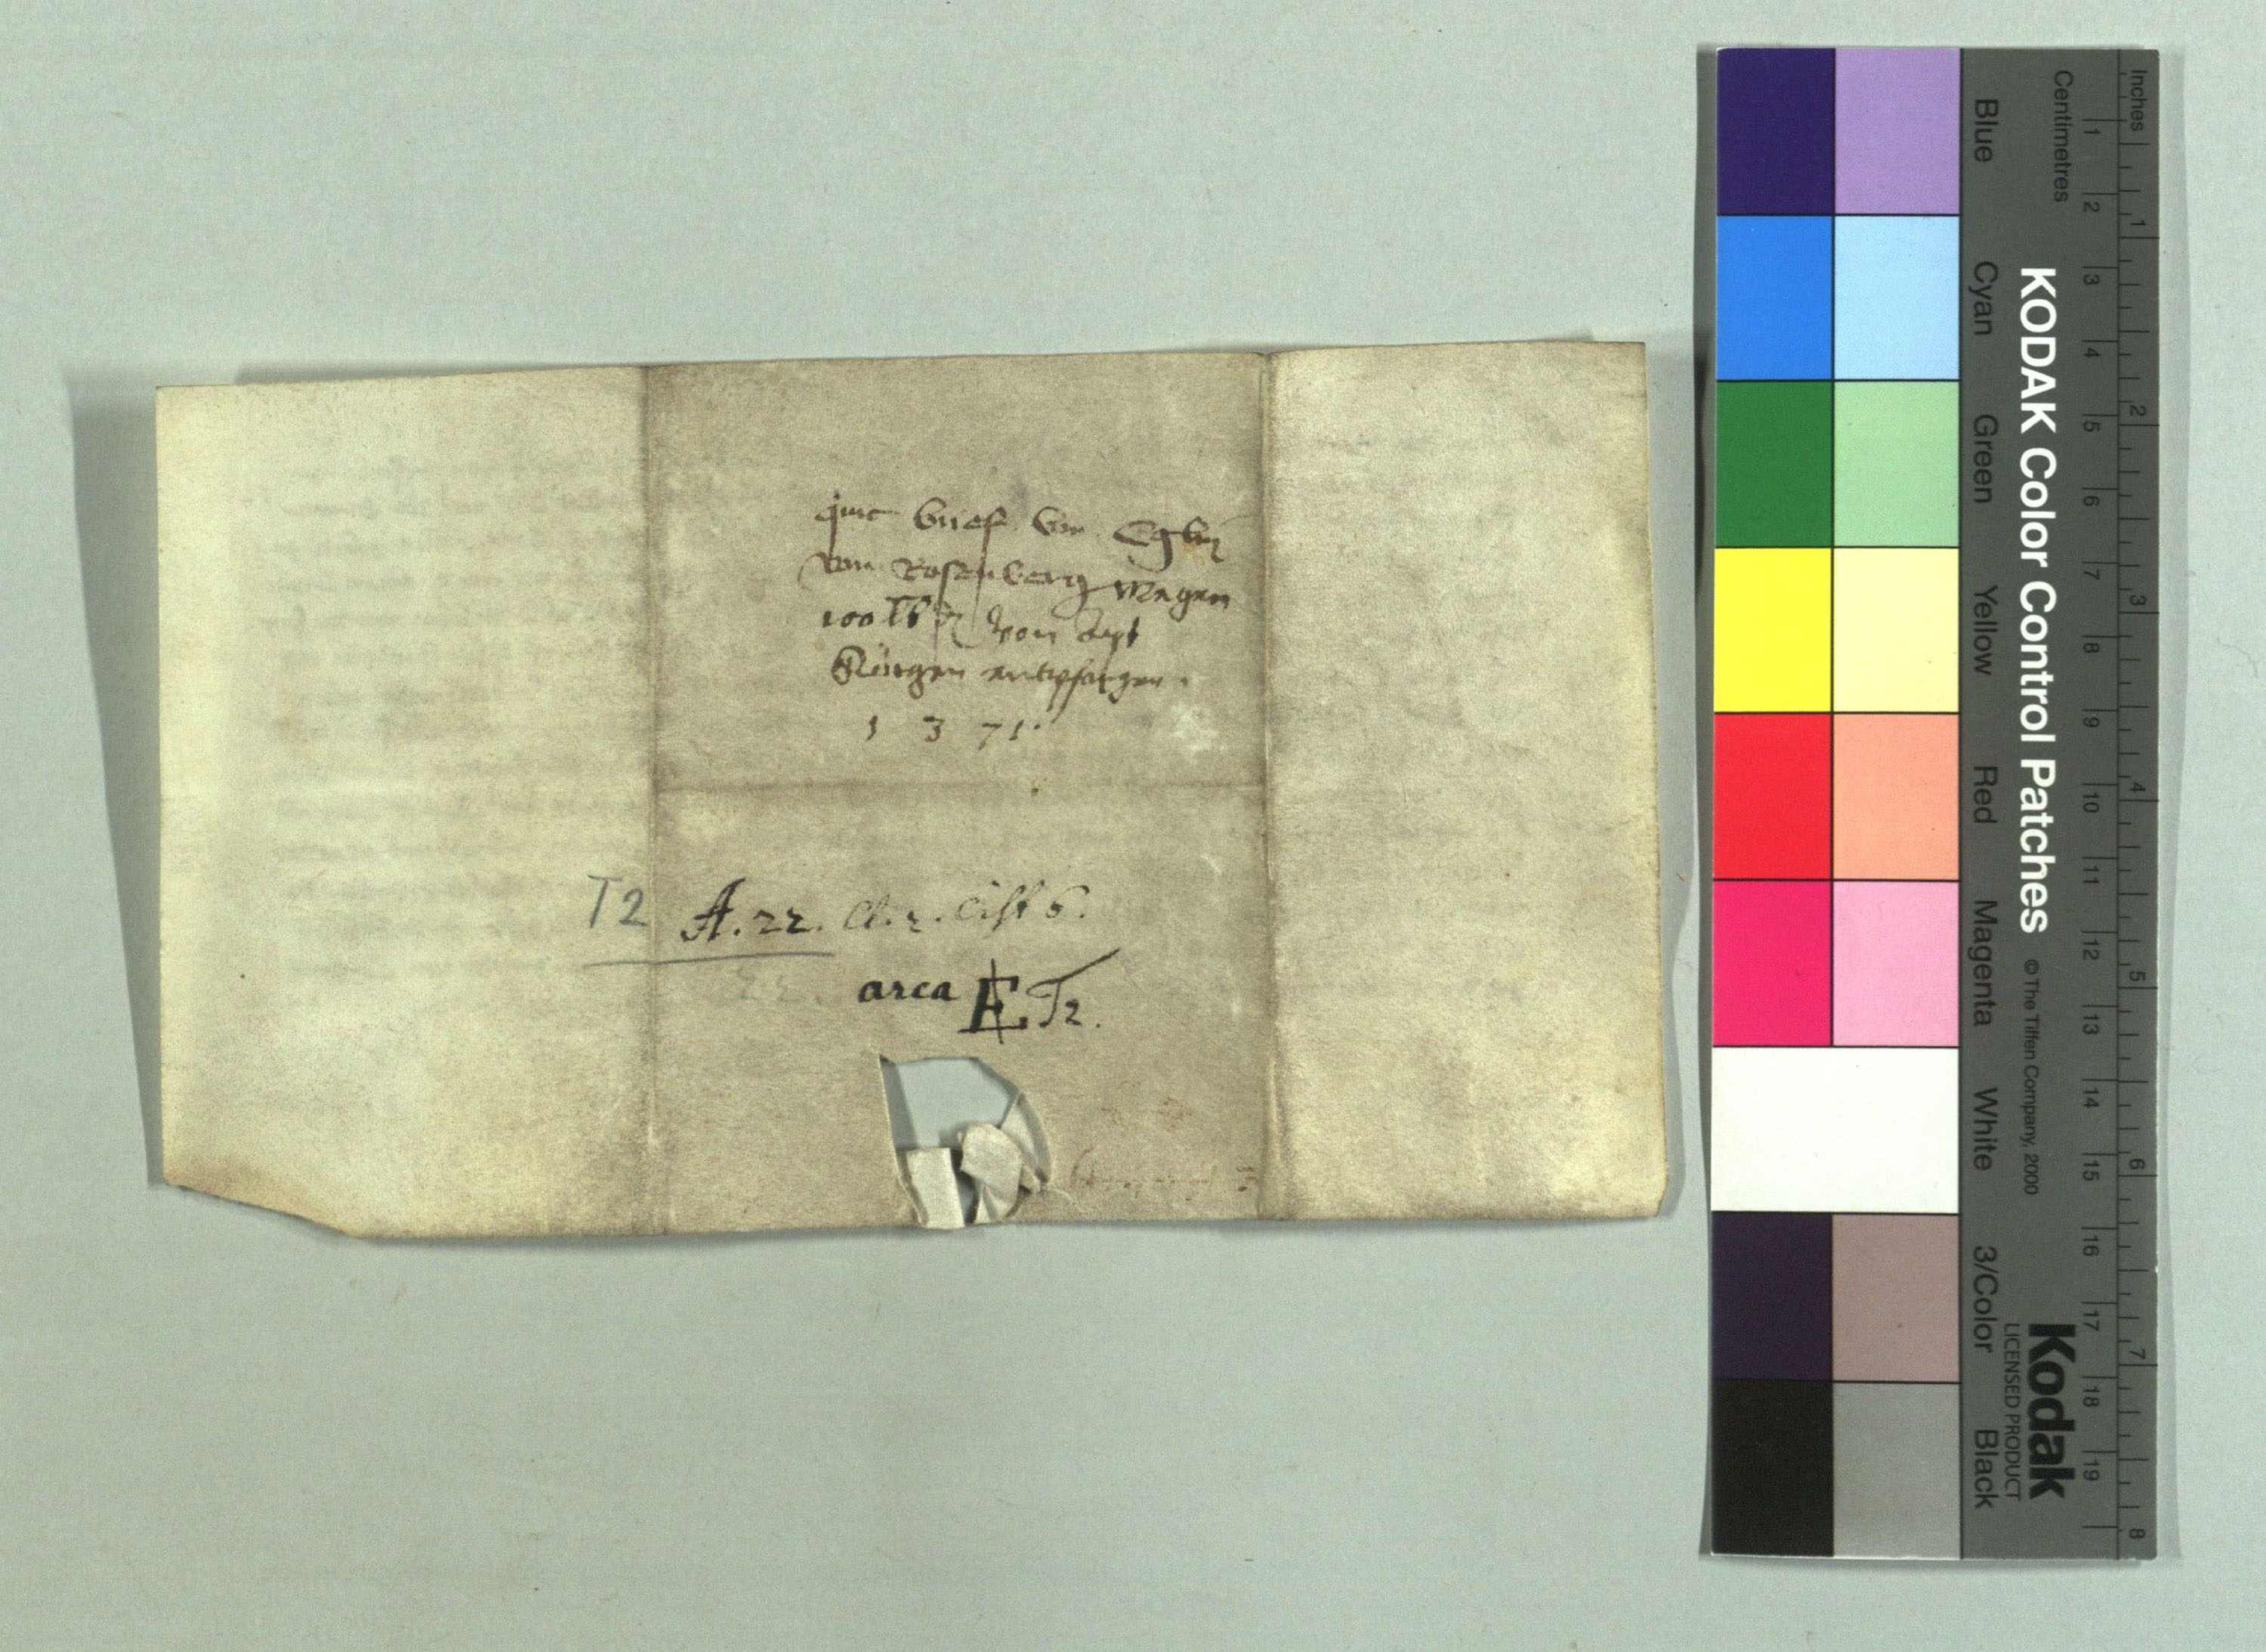 quit brief von Eglin
von Rosenberg wegen
100 lb ₰ von Apt
Görgen entpfangen.
1 3 7 1.
T2 A. 22. Cl. 2. Cist 6.
22.
arca E T2.
Inches
Centimetres
1 2 3 4 5 6 7 8 9 10 11 12 13 14 15 16 17 18 19
1 2 3 4 5 6 7 8
Blue Cyan Green Yellow Red Magenta White 3/Color Black
KODAK Color Control Patches © The Tiffen Company, 2000
Kodak
LICENSED PRODUCT